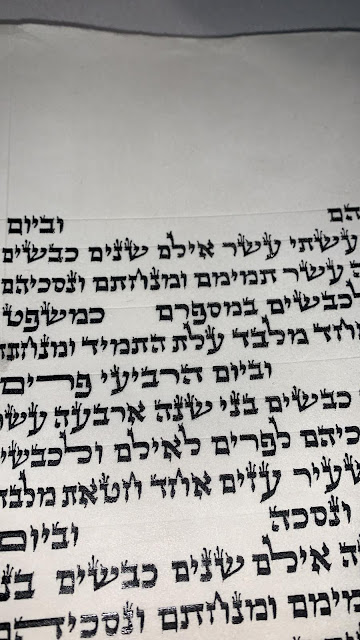 הם וביום
עשתי עשר אילם שנים כבשים
ה עשר תמימם ומנחתם ונסכיהם
לכבשים במספרם כמשפט
אחד מלבד עלת התמיד ומנחתה
וביום הרביעי פרים
כבשים בני שנה ארבעה עשר
כיהם לפרים לאילם ולכבשי
שעיר עזים אחד חטאת מלבד
ונסכה וביום
ה אילם שנים כבשים בנ
מימם ומנחתם ונסכיהם